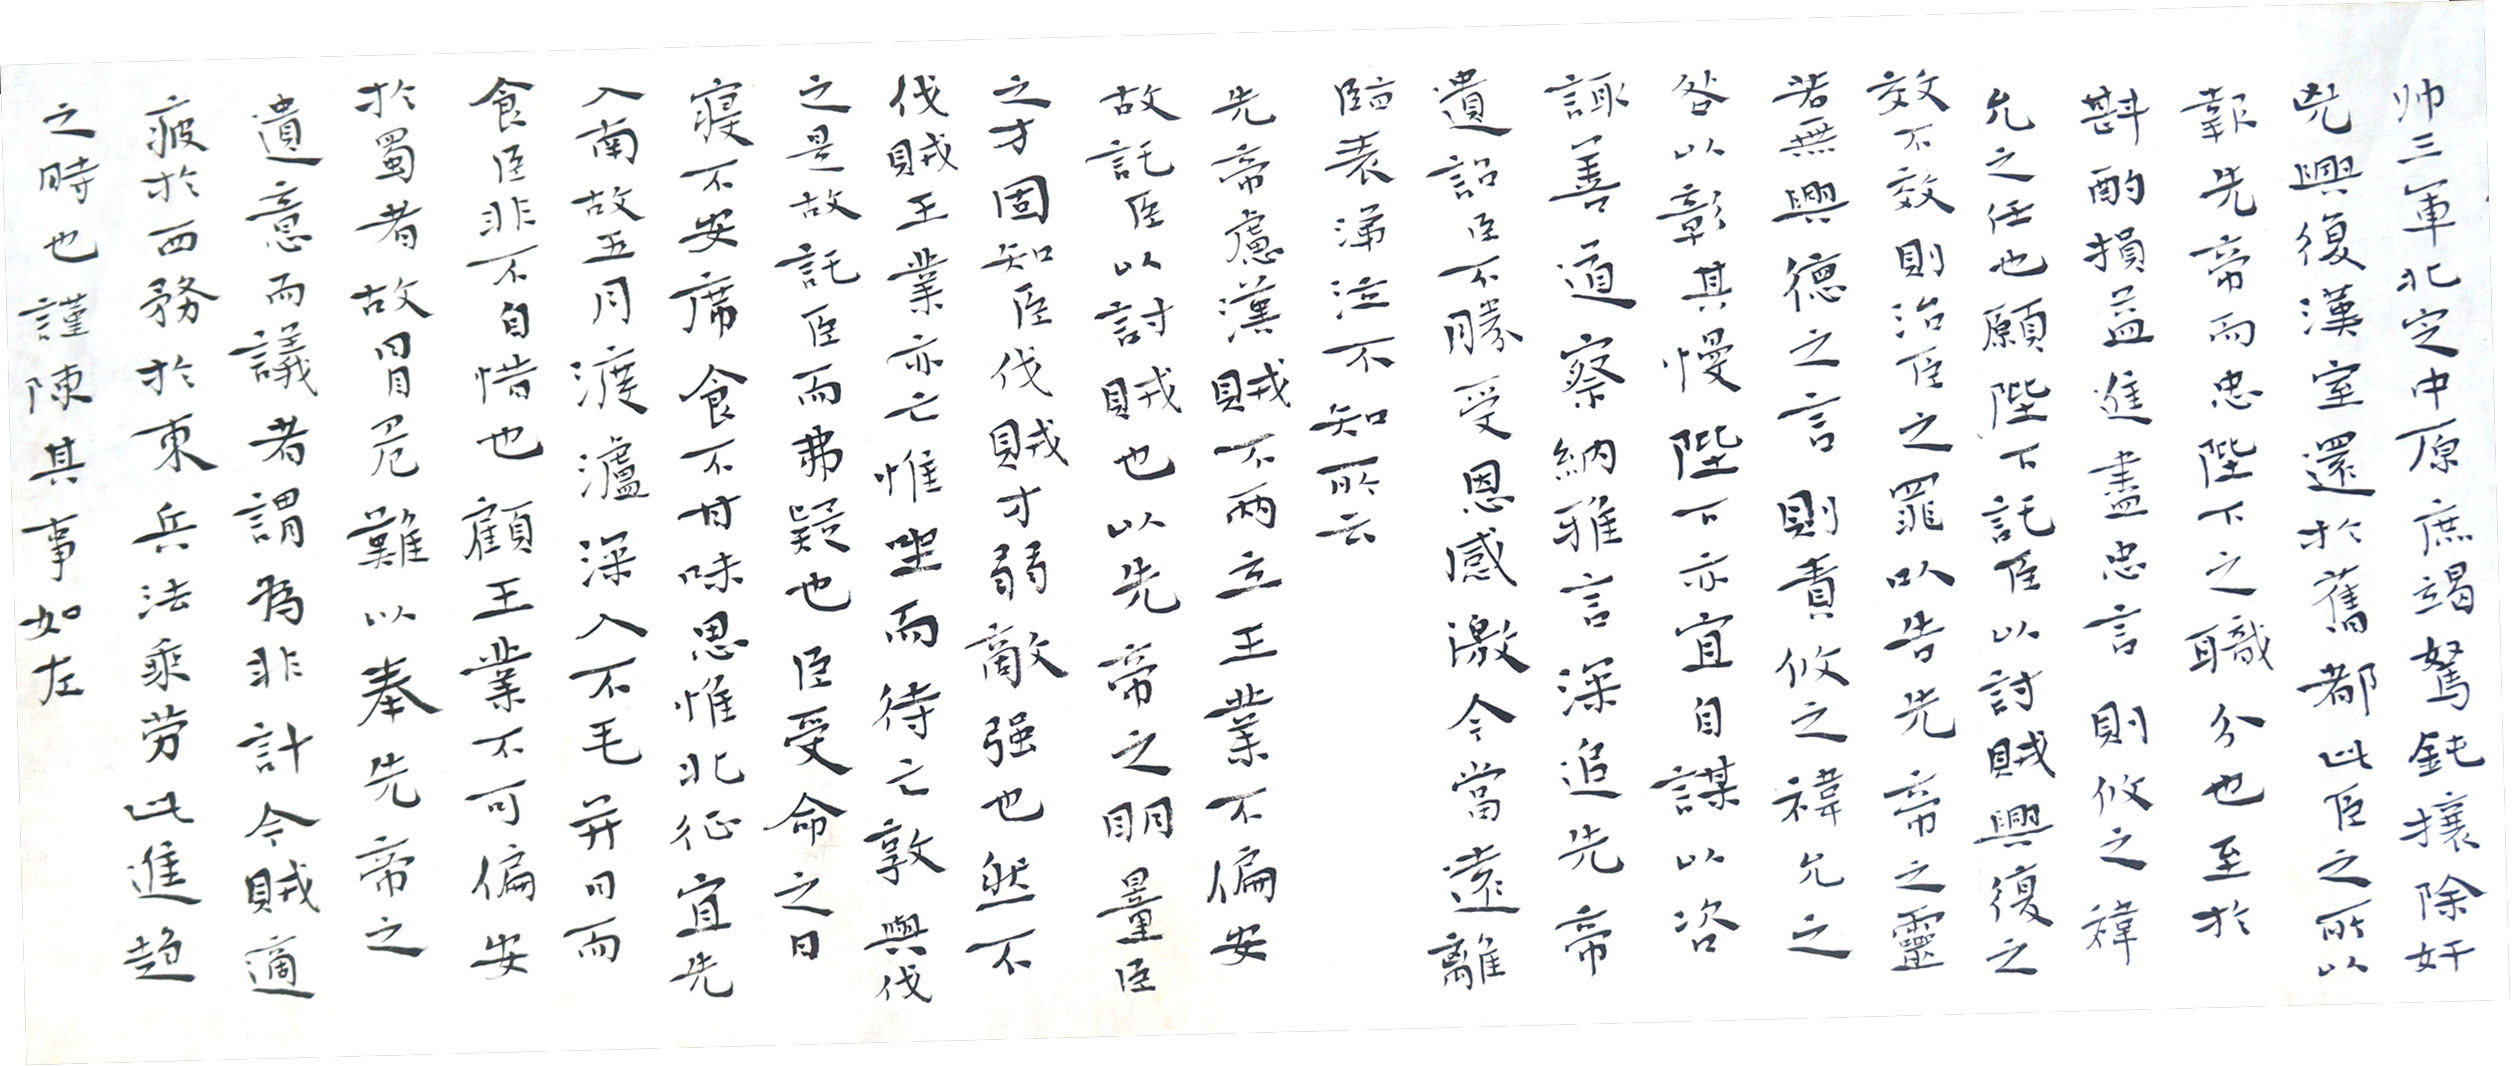 帅三軍北定中原庶竭駑鈍攘除奸
兇興復漢室還於舊都此臣之所以
報先帝而忠陛下之職分也至於
斟酌損益進盡忠言則攸之禕
允之任也願陛下託臣以討賊興復之
效不效則治臣之罪以告先帝之靈
若無興德之言則責攸之禕允之
咎以彰其慢陛下亦宜自謀以咨
諏善道察納雅言深追先帝
遺詔臣不勝受恩感激今當遠離
臨表涕泣不知所云
先帝慮漢賊不兩立王業不偏安
故託臣以討賊也以先帝之明量臣
之才固知臣伐賊才弱敵强也然不
伐賊王業亦亡惟坐而待亡孰與伐
之是故託臣而弗疑也臣受命之日
寢不安席食不甘味思惟北征宜先
入南故五月渡瀘深入不毛并日而
食臣非不自惜也顧王業不可偏安
於蜀者故冒危難以奉先帝之
遺意而議者謂為非計今賊適
疲於西務於東兵法乘劳此進趋
之時也謹陳其事如左